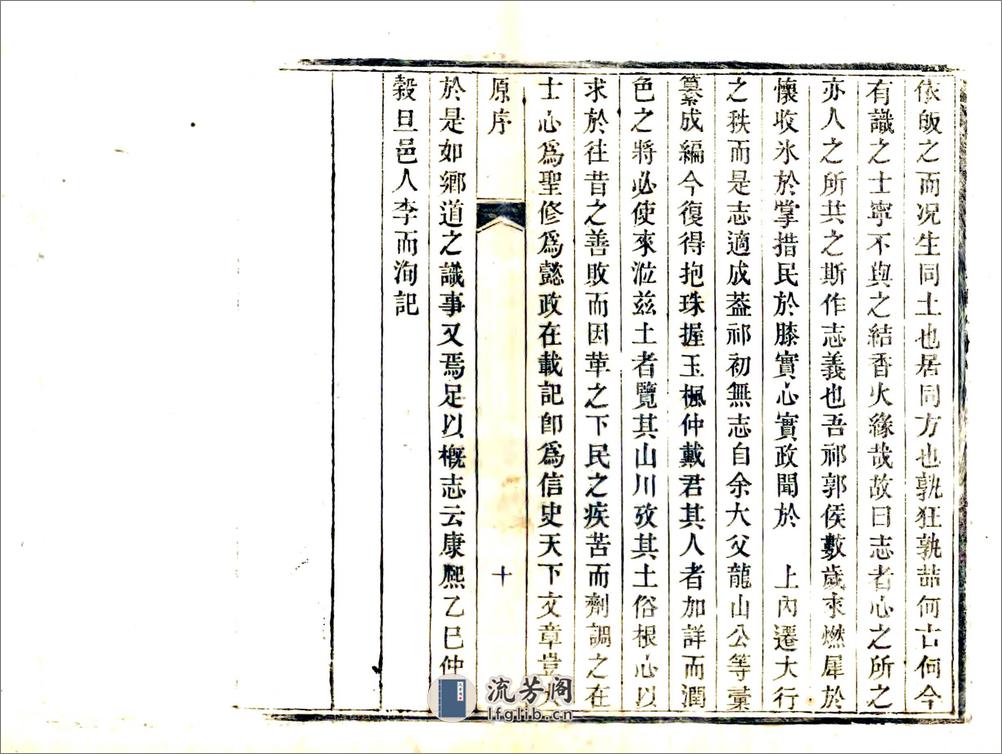 依皈之而况生同土也居同方也孰狂孰喆何古何今
有識之士寧不與之結香火緣哉故曰志者心之所之
亦人之所共之斯作志義也吾祁郭侯數歲求燃犀於
懷收氷於掌措民於膝實心實政聞於　上內遷大行
之秩而是志適成葢祁初無志自余大父龍山公等稾
纂成編今復得抱珠握玉楓仲戴君其人者加詳而潤
色之將必使來涖兹土者覽其山川攷其土俗根心以
求於往昔之善敗而因革之下民之疾苦而劑調之在
士心爲聖修爲懿政在載記卽爲信史天下文章豈
原序　十
於是如鄉道之識事又焉足以槪志云康熙乙巳仲
穀旦邑人李而洵記
流芳阁
lfglib.cn